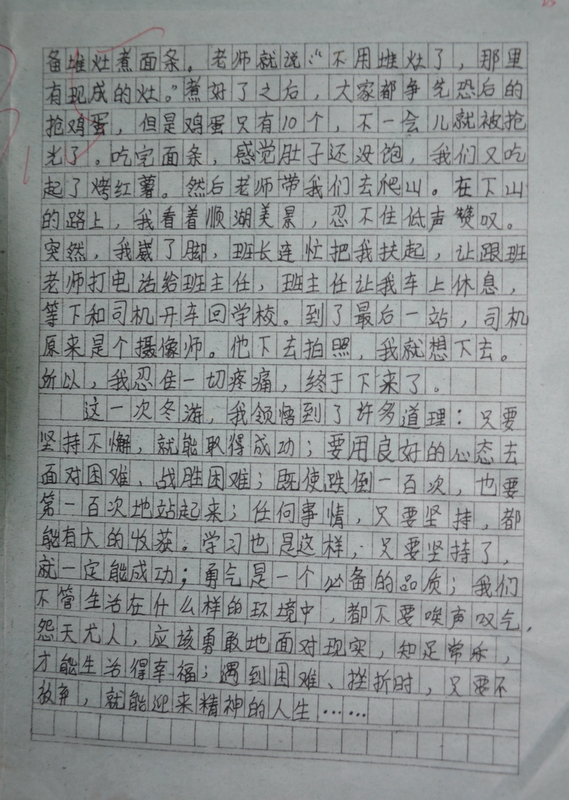 备堆灶煮面条。老师就说:“不用堆灶了,那里
有现成的灶。”煮好了之后,大家都争先恐后的
抢鸡蛋,但是鸡蛋只有10个,不一会儿就被抢
光了。吃完面条,感觉肚子还没饱,我们又吃
起了烤红薯。然后老师带我们去爬山。在下山
的路上,我看着顺湖美景,忍不住低声赞叹。
突然,我崴了脚,班长连忙把我扶起,让跟班
老师打电话给班主任,班主任让我车上休息,
等下和司机开车回学校。到了最后一站,司机
原来是个摄像师。他下去拍照,我就想下去。
所以,我忍住一切疼痛,终于下来了。
这一次冬游,我领悟到了许多道理:只要
坚持不懈,就能取得成功;要用良好的心态去
面对困难、战胜困难;既使跌倒一百次,也要
第一百次地站起来;任何事情,只要坚持,都
能有大的收获。学习也是这样,只要坚持了,
就一定能成功;勇气是一个必备的品质;我们
不管生活在什么样的环境中,都不要唉声叹气,
怨天尤人,应该勇敢地面对现实,知足常乐,
才能生活得幸福;遇到困难、挫折时,只要不
放弃,就能迎来精神的人生……